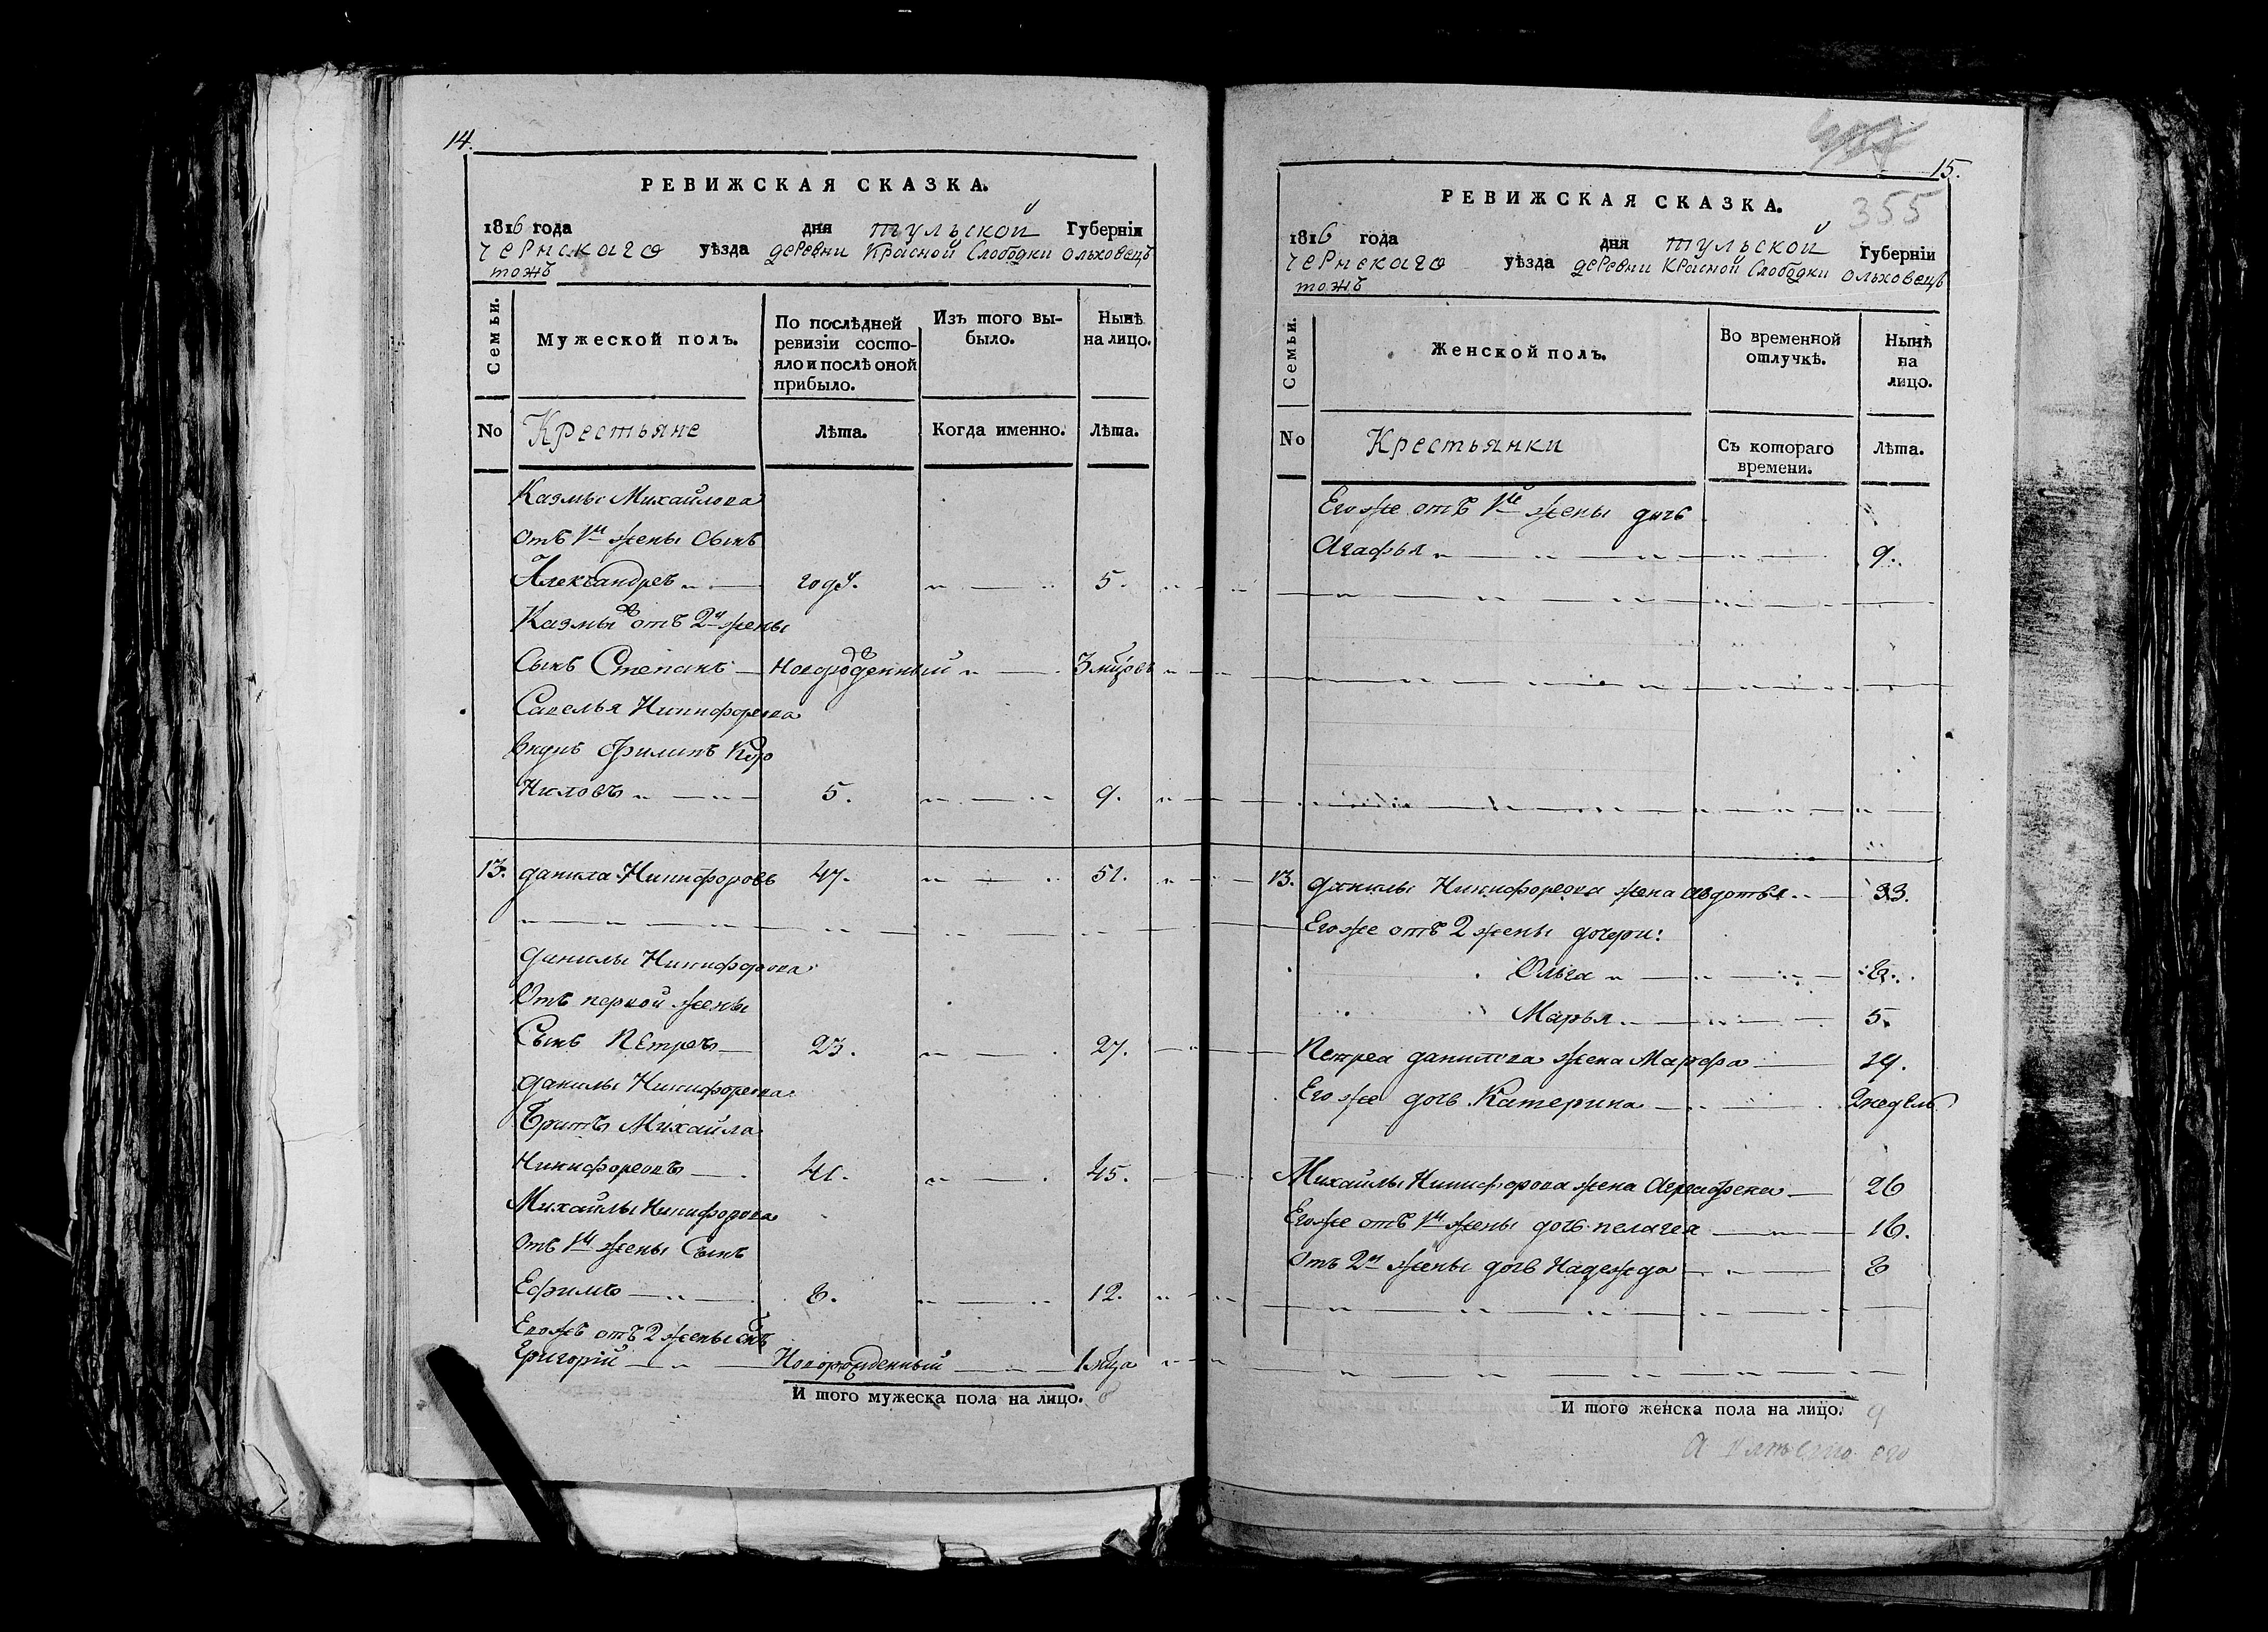 14.
РЕВИЖСКАЯ СКАЗКА.
1816 года дня тульской Губерніи
чернскаго уѣзда деревни Красной Слободки ольховецъ
тожъ
Семьи.
Мужеской полъ.
По послѣдней ревизіи состояло и послѣ оной прибыло.
Изъ того выбыло.
Нынѣ на лицо.
No
Крестьяне
Лѣта.
Когда именно.
Лѣта.
Казмы Михайлова
отъ 1й жены сынъ
Александръ годъ. 5.
Казмы отъ 2й жены
Сынъ Степанъ Новорожденный 3 мцовъ
Савелья Никифорова
внукъ Филипъ
5. 9.
13. данила Никифоровъ 47. 51.
данилы Никифорова
отъ первой жены
Сынъ Петръ 23. 27.
данилы Никифорова
братъ Михайла
Никифоровъ 41. 45.
Михайлы Никифорова
отъ 1й жены Сынъ
Ефимъ 8. 12.
Егожъ отъ 2 жены снъ
Григорій Новорожденный 1 мца
И того мужеска пола на лицо. 8
15.
355
РЕВИЖСКАЯ СКАЗКА.
1816 года дня тульской Губерніи
чернскаго уѣзда деревни Красной Слободки ольховецъ
тожъ
Семьи.
Женской полъ.
Во временной отлучкѣ.
Нынѣ на лицо.
No
Крестьянки
Съ котораго времени.
Лѣта.
Егоже отъ 1й жены дочь
Агафья 9.
13. данилы Никифорова жена авдотья 33.
Егоже отъ 2 жены дочери:
Ольга 8.
Марья 5.
Петра данилова жена Марфа 29.
Егоже дочь Катерина 2 недель
Михайлы Никифорова жена Аграфена 26
Егоже отъ 1й жены дочь пелагея 16.
отъ 2й жены дочь Надежда 8
И того женска пола на лицо. 9